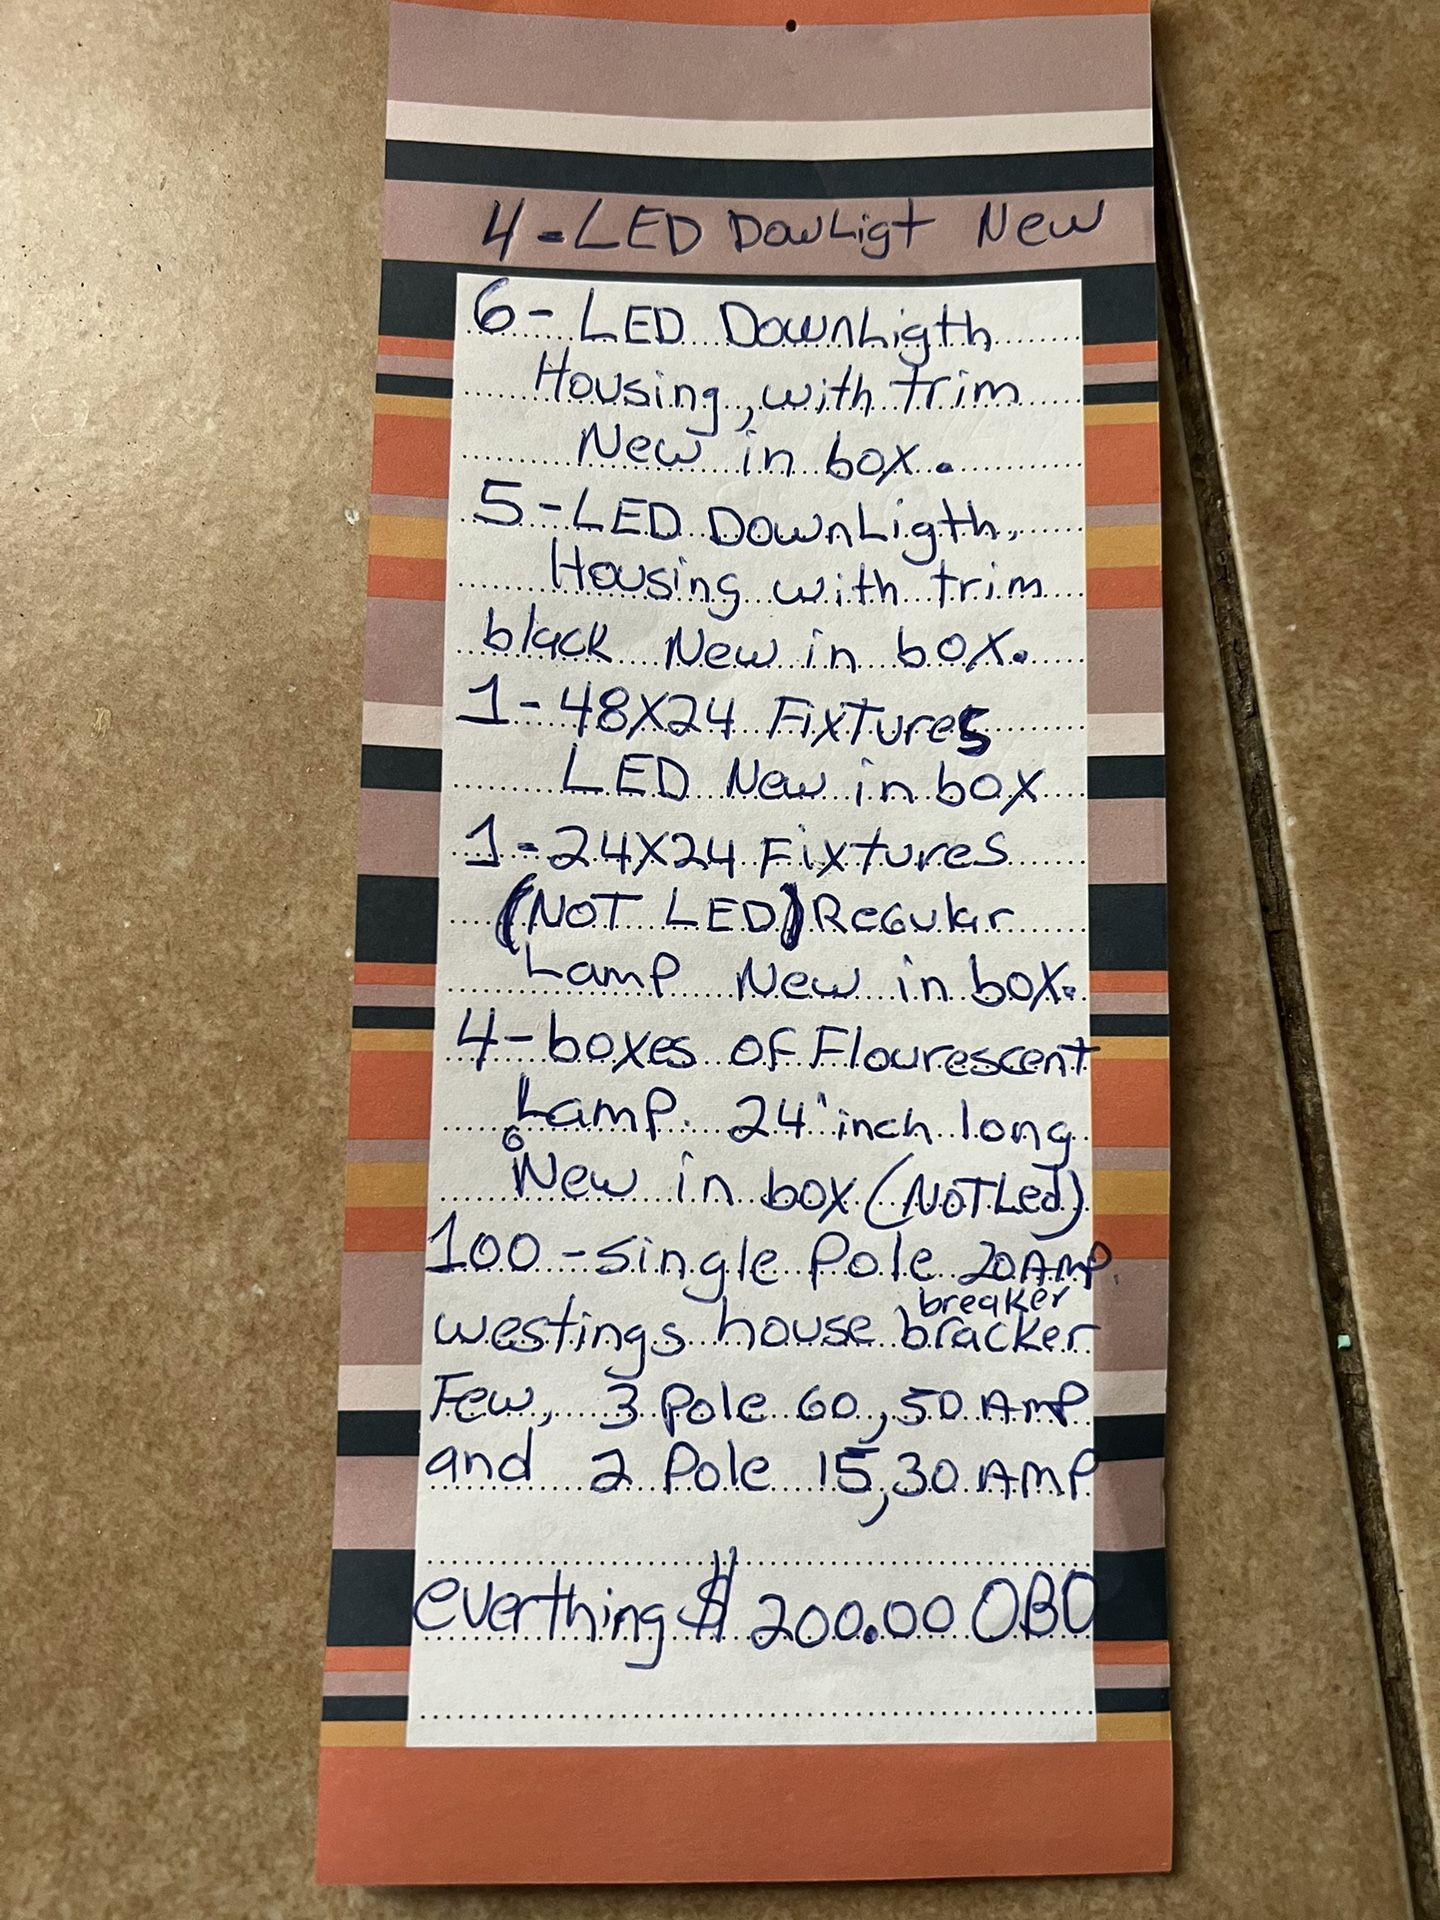 4-LED DowLigt New
6-LED DownLigth
Housing, with trim
New in box.
5-LED DownLigth,
Housing with trim
black New in box.
1-48X24 Fixtures
LED New in box
1-24X24 Fixtures
(NOT LED) Regular
Lamp New in box.
4-boxes of Flourescent
Lamp. 24" inch long
New in box (NOT Led)
100-single Pole 20 AMP.
breaker
westings house bracker
Few, 3 Pole 60, 50 AMP
and 2 Pole 15, 30 AMP
everthing $200.00 OBO